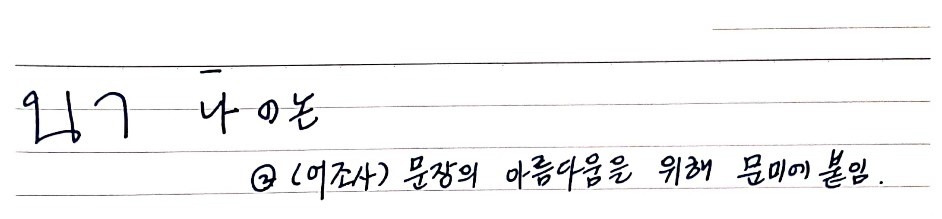 นา 나- ①논
② (어조사) 문장의 아름다움을 위해 문미에 붙임.